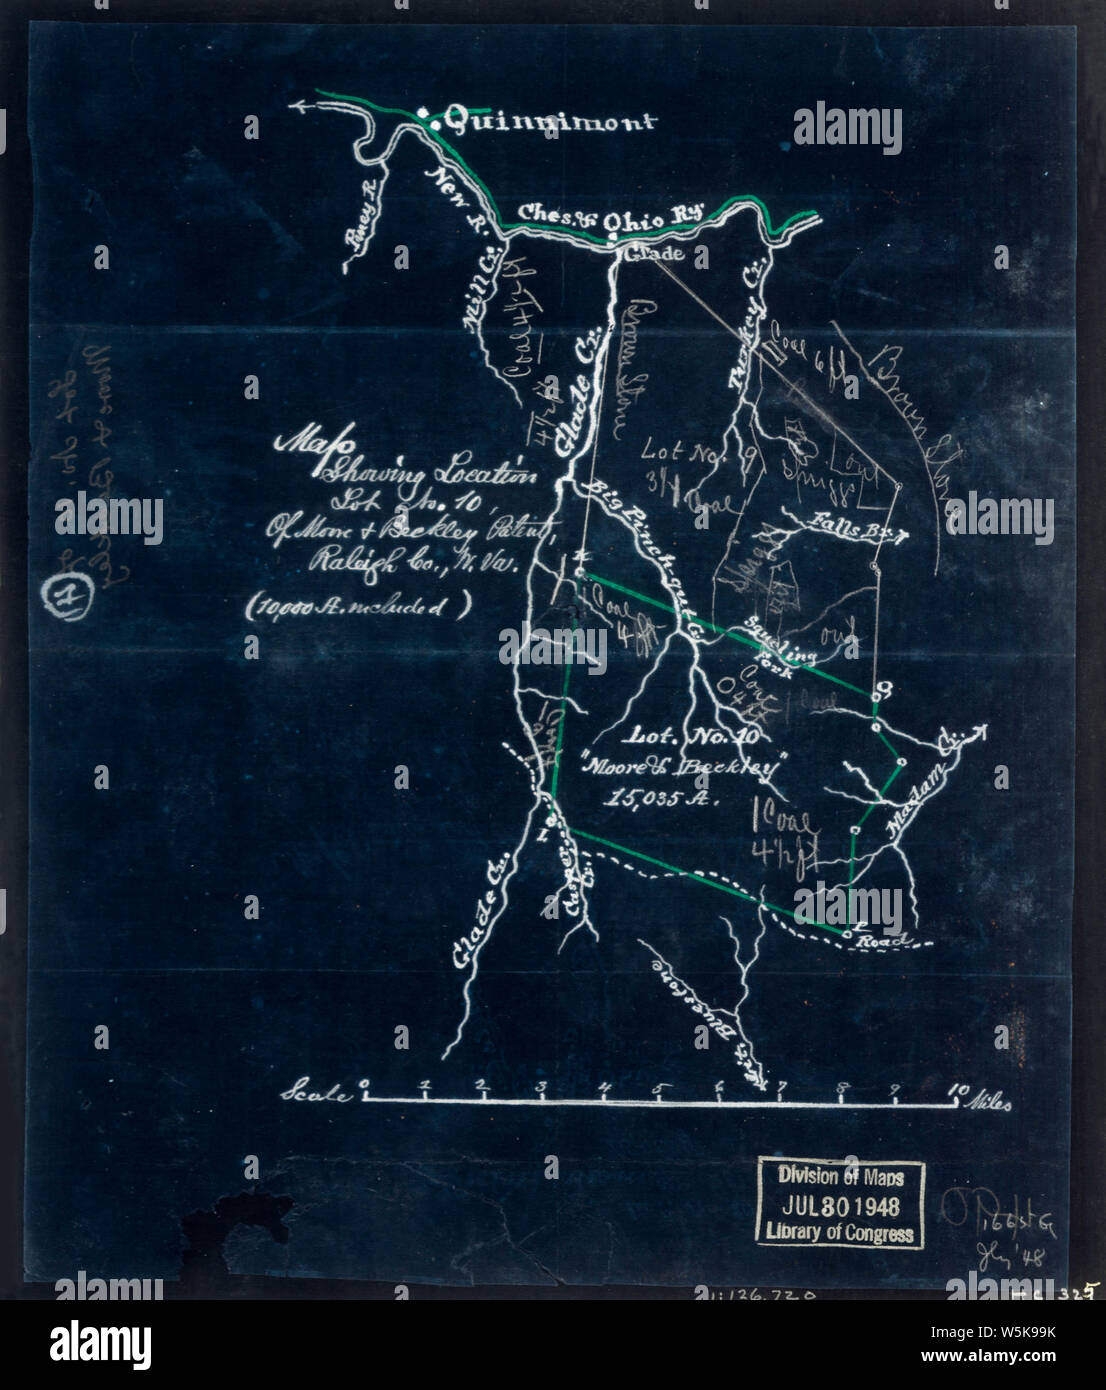 Quinnimont
Piney R.
New R.
Ches. & Ohio Ry
Glade
Mill Cr.
Coal 4½ ft
Glade Cr.
Brown Stone
Turkey Cr.
Coal 6 ft
Brown Stone
4½ ft
Map
Showing Location
Lot No. 10,
Of Moore & Beckley Patent,
Raleigh Co., W. Va.
(10,000 A. included)
Lot No. 9
3½ Coal
Big Pinch-gut Cr.
Falls Br.
K
1
Coal
4 ft
Squeling
Fork
out
Q
Coal
4 ft
1 Coal
Lot. No. 10
"Moore & Beckley"
15,035 A.
Madam Cr.
1 Coal
4½ ft
L
Casper Cr.
Glade Cr.
P
Road
Lit. Bluestone
Scale 0 1 2 3 4 5 6 7 8 9 10 Miles
Division of Maps
JUL 30 1948
Library of Congress
July '48
1:126,720
325
alamy
Image ID: W5K99K
www.alamy.com